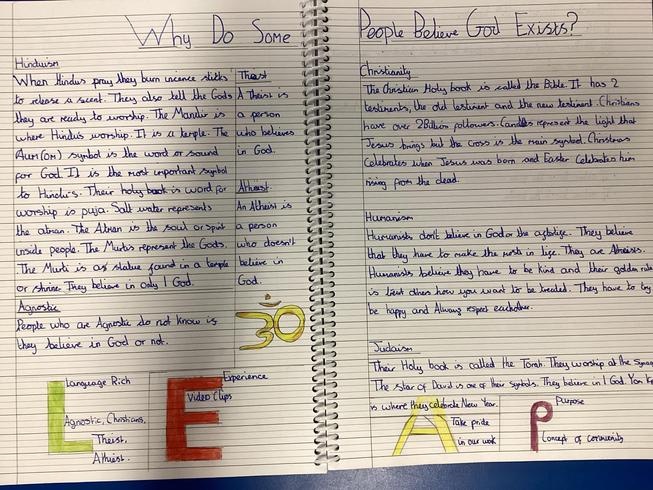 Why Do Some People Believe God Exists?
Hinduism
When Hindus pray they burn incence sticks
to release a scent. They also tell the Gods
they are ready to worship. The Mandir is
where Hindus worship. It is a temple. The
Aum(Om) symbol is the word or sound
for God. It is the most important symbol
to Hindu's. Their holy book is word for
worship is puja. Salt water represents
the atman. The Atman is the soul or spirit
inside people. The Murtis represent the Gods.
The Murti is a statue found in a temple
or shrine. They believe in only 1 God.
Theist
A Theist is
a person
who believes
in God.
Atheist
An Atheist is
a person
who doesn't
believe in
God.
Agnostic
People who are Agnostic do not know is
they believe in God or not.
ॐ
L
Language Rich
Agnostic, Christians,
Theist,
Atheist.
E
Experience
Video Clips
Christianity
The Christian Holy book is called the Bible. It has 2
testiments, the old testiment and the new testiment. Christians
have over 2Billion followers. Candles represent the light that
Jesus brings but the cross is the main symbol. Christmas
Celebrates when Jesus was born and Easter Celebrates him
rising from the dead.
Humanism
Humanists don't believe in God or the They believe
that they have to make the most in life. They are Atheists.
Humanists believe they have to be kind and their golden rule
is treat others how you want to be treated. They have to try
be happy and Always respect eachother.
Judaism
Their Holy book is called the Torah. They worship at the
The star of David is one of their symbols. They believe in 1 God. Yom
is where they celebrate New Year.
A
Take pride
in our work
P
Purpose
Concept of community